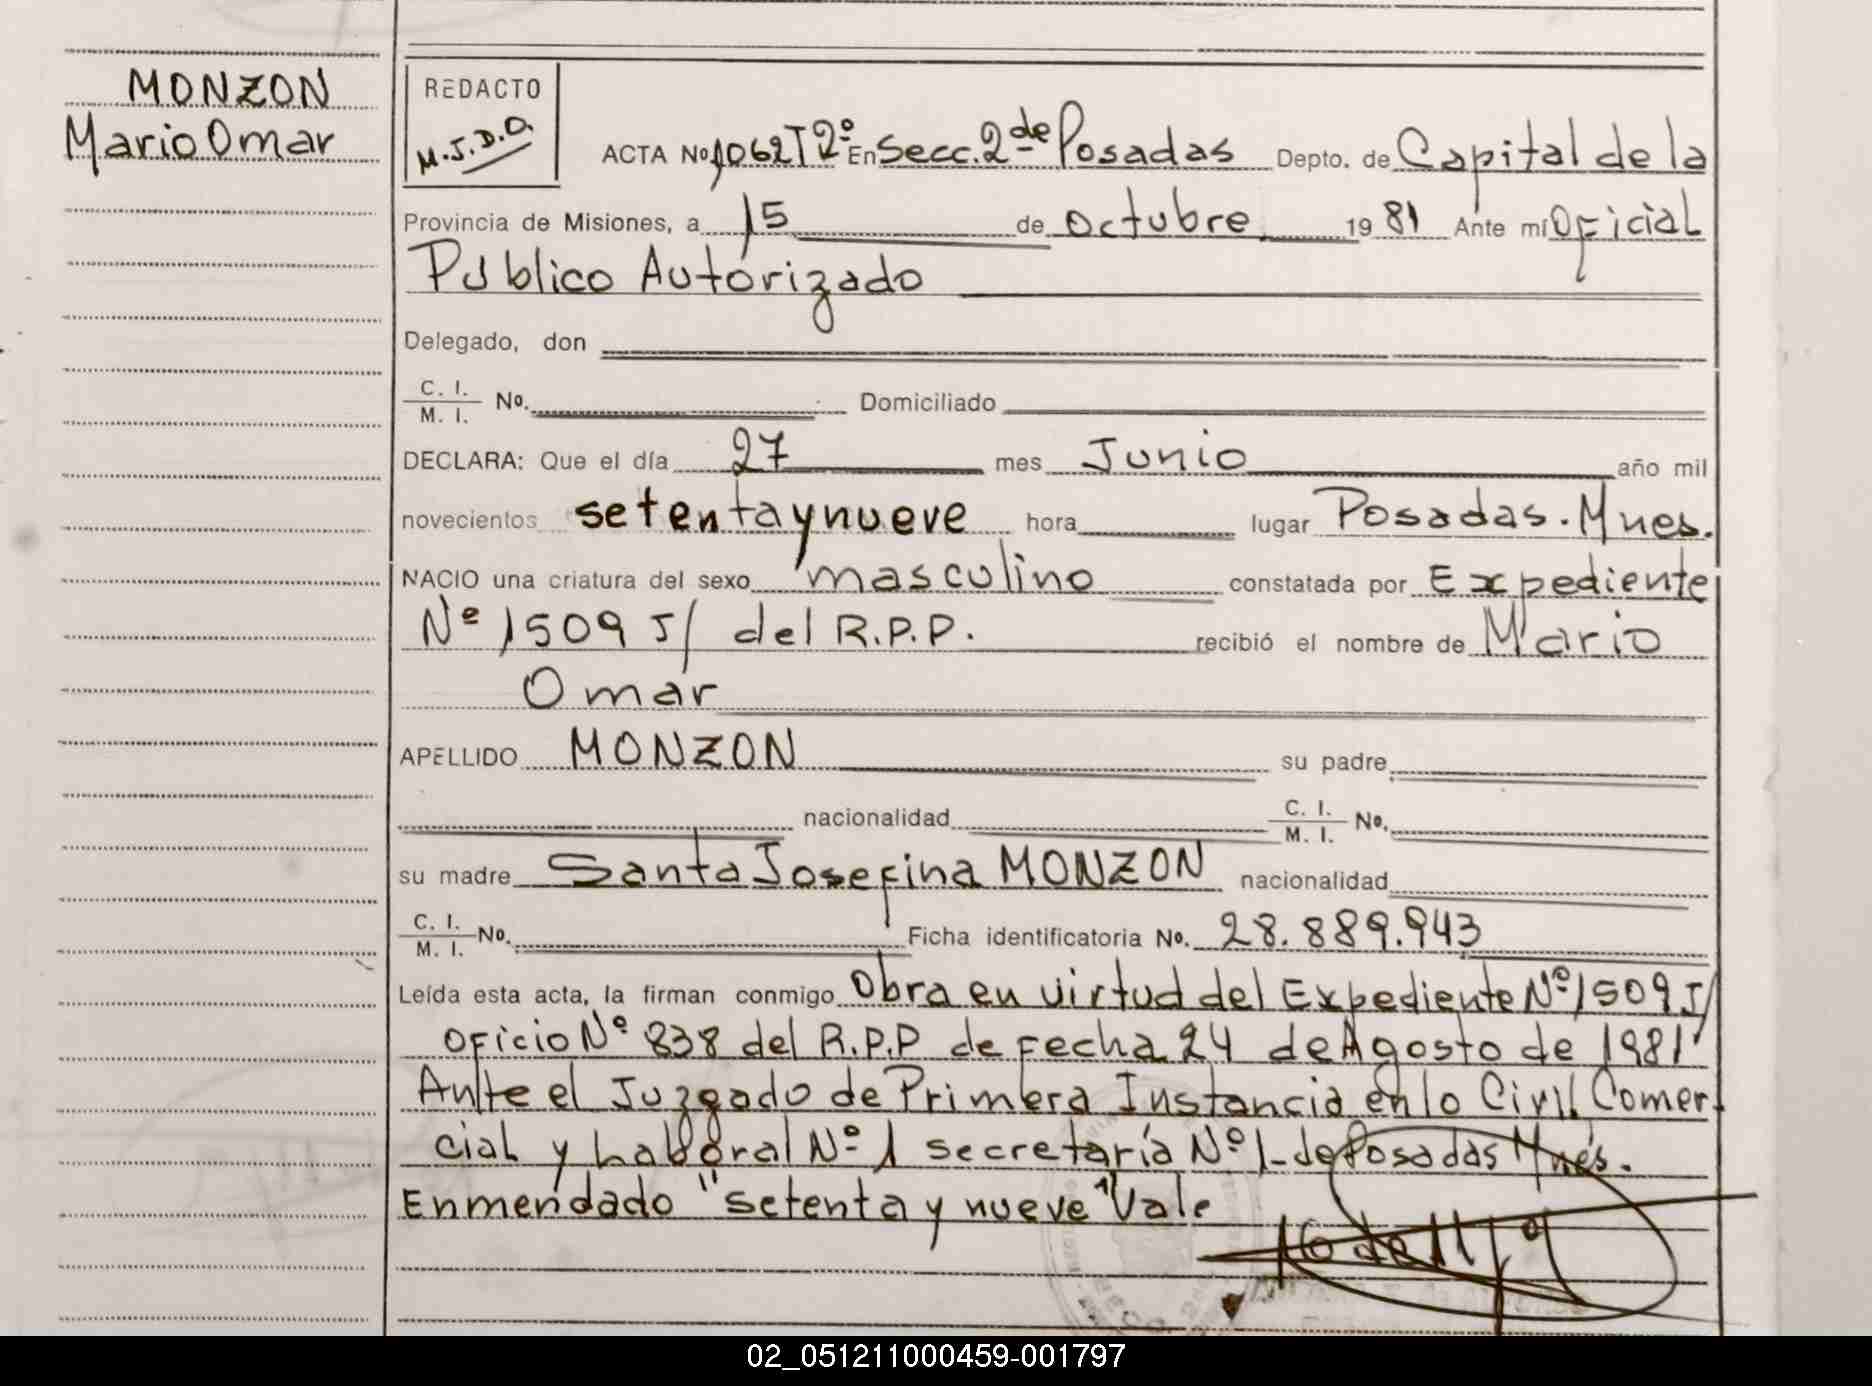 MONZON
Mario Omar
REDACTO
M.J.D.O.
ACTA No 1062 T2º En Secc. 2ª de Posadas Depto. de Capital de la
Provincia de Misiones, a 15 de octubre 1981 Ante mí Oficial
Público Autorizado
Delegado, don
C. I.
M. I. No. Domiciliado
DECLARA: Que el día 27 mes Junio año mil
novecientos setenta y nueve hora lugar Posadas. Mnes.
NACIO una criatura del sexo masculino constatada por Expediente
Nº 1509 J/ del R.P.P. recibió el nombre de Mario
Omar
APELLIDO MONZON su padre
nacionalidad C. I.
M. I. No.
su madre Santa Josefina MONZON nacionalidad
C. I.
M. I. No. Ficha identificatoria No. 28.889.943
Leída esta acta, la firman conmigo Obra en virtud del Expediente Nº 1509 J/
oficio Nº 838 del R.P.P de fecha 24 de Agosto de 1981
Ante el Juzgado de Primera Instancia en lo Civil Comer-
cial y Laboral Nº 1 secretaría Nº 1- de Posadas Mnes.
Enmendado "setenta y nueve" Vale
02_051211000459-001797